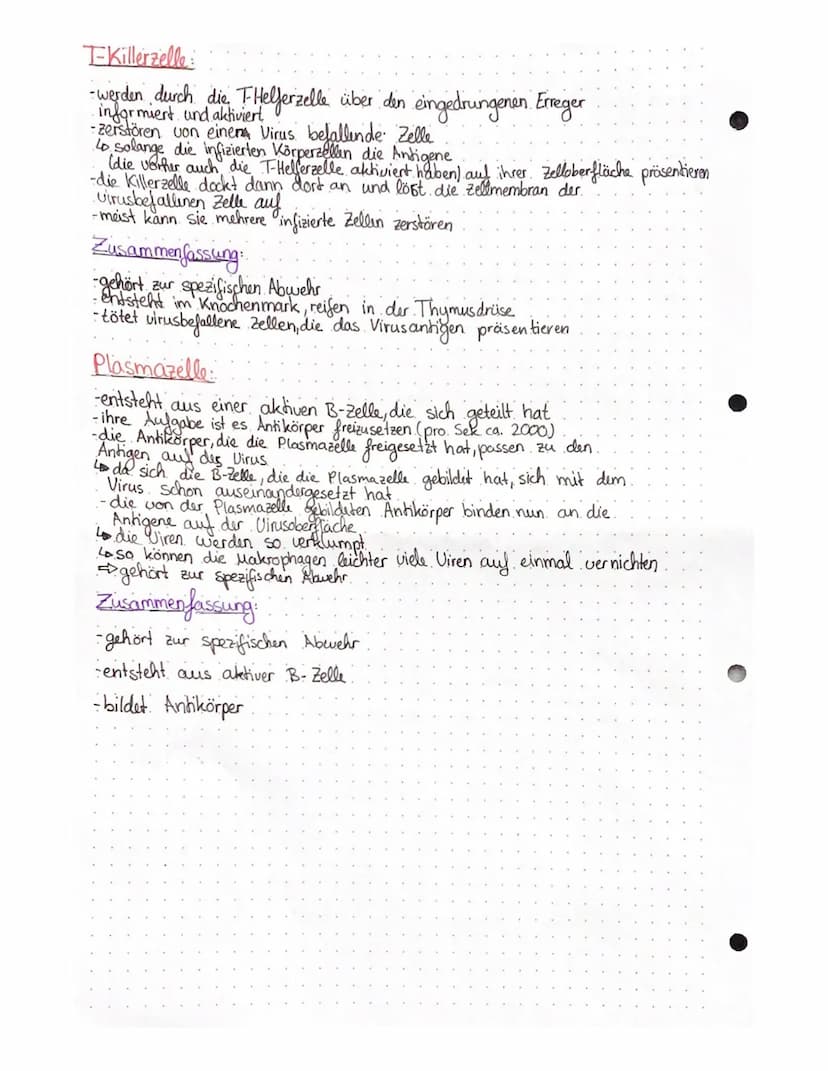 T-Killerzelle:
-werden durch die T-Helferzelle über den eingedrungenen Erreger
informiert und aktiviert
-zerstören von einem Virus befallende Zelle
↳ solange die infizierten Körperzellen die Antigene
(die vorher auch die T-Helferzelle aktiviert haben) auf ihrer Zelloberfläche präsentieren
-die Killerzelle dockt dann dort an und lößt die Zellmembran der
virusbefallenen Zelle auf
-meist kann sie mehrere infizierte Zellen zerstören
Zusammenfassung:
-gehört zur spezifischen Abwehr
-entsteht im Knochenmark, reifen in der Thymusdrüse
-tötet virusbefallene Zellen, die das Virusantigen präsentieren
Plasmazelle:
-entsteht aus einer aktiven B-Zelle, die sich geteilt hat
-ihre Aufgabe ist es Antikörper freizusetzen (pro Sek ca. 2000)
-die Antikörper, die die Plasmazelle freigesetzt hat, passen zu den
Antigen auf des Virus
↳ da sich die B-Zelle, die die Plasmazelle gebildet hat, sich mit dem
Virus schon auseinandergesetzt hat
-die von der Plasmazelle gebildeten Antikörper binden nun an die
Antigene auf der Virusoberfläche
↳ die Viren werden so verklumpt
↳ so können die Makrophagen leichter viele Viren auf einmal vernichten
⇒ gehört zur spezifischen Abwehr
Zusammenfassung:
-gehört zur spezifischen Abwehr
-entsteht aus aktiver B-Zelle
-bildet Antikörper